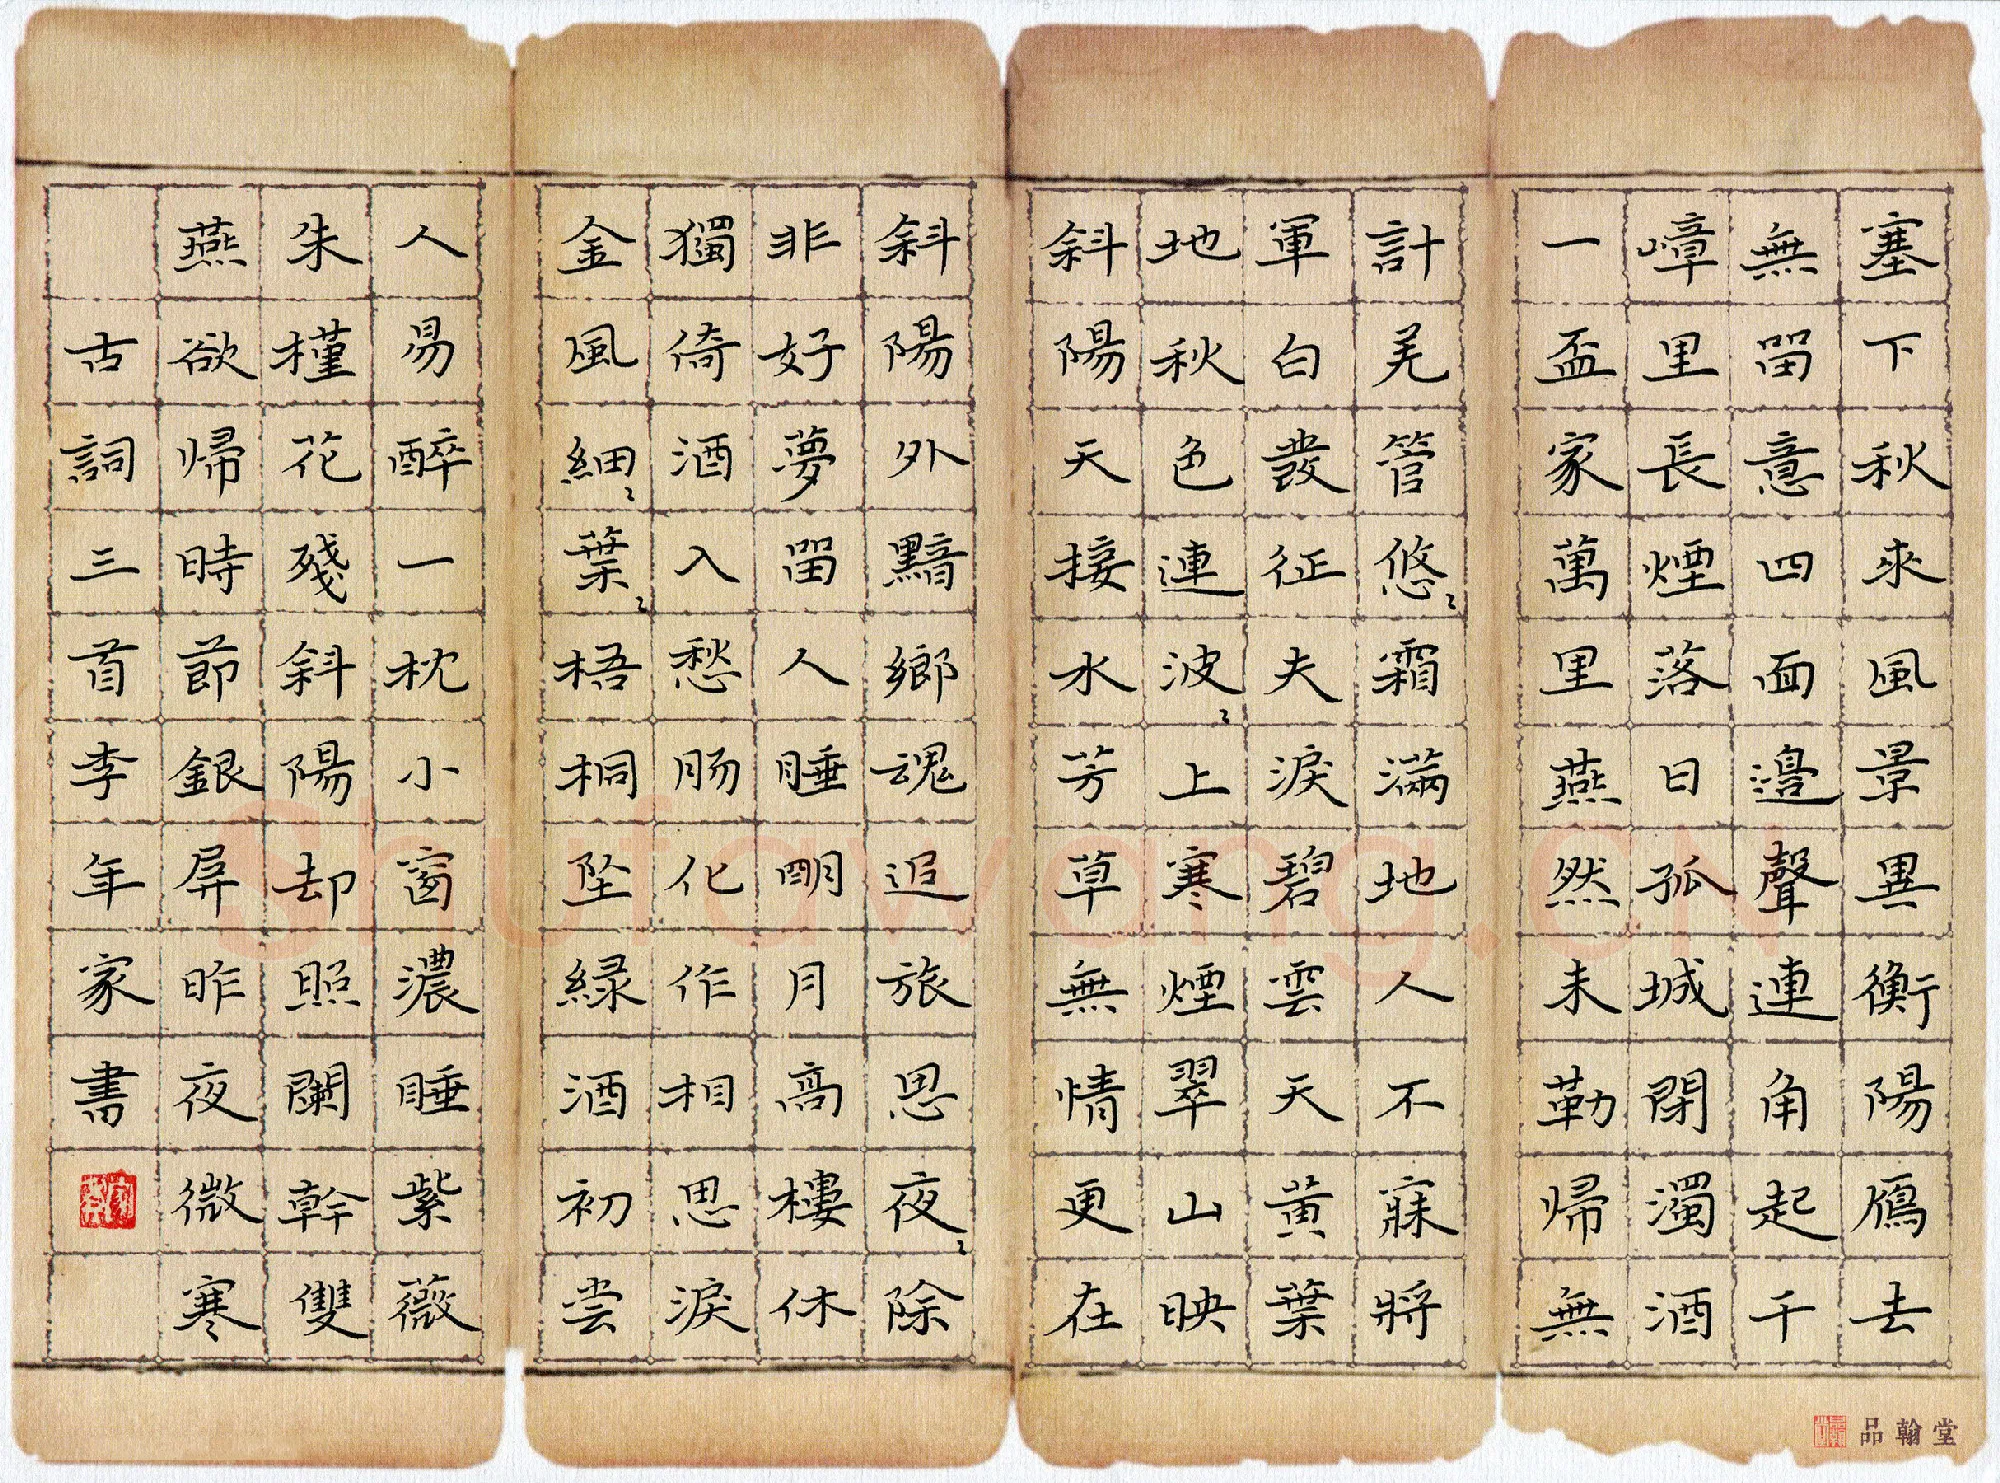 塞下秋來風景異衡陽鴈去
無畱意四面邉聲連角起千
嶂里長煙落日孤城閉濁酒
一盃家萬里燕然未勒歸無
計羌管悠〻霜滿地人不寐將
軍白發征夫淚碧雲天黃葉
地秋色連波〻上寒煙翠山映
斜陽天接水芳草無情更在
斜陽外黯鄉魂追旅思夜〻除
非好夢畱人睡明月高樓休
獨倚酒入愁肠化作相思淚
金風細〻葉〻梧桐坠緑酒初尝
人易醉一枕小窗濃睡紫薇
朱槿花殘斜陽却照闌幹雙
燕欲歸時節銀屏昨夜微寒
古詞三首李年家書
品翰堂
Shufawang.CN